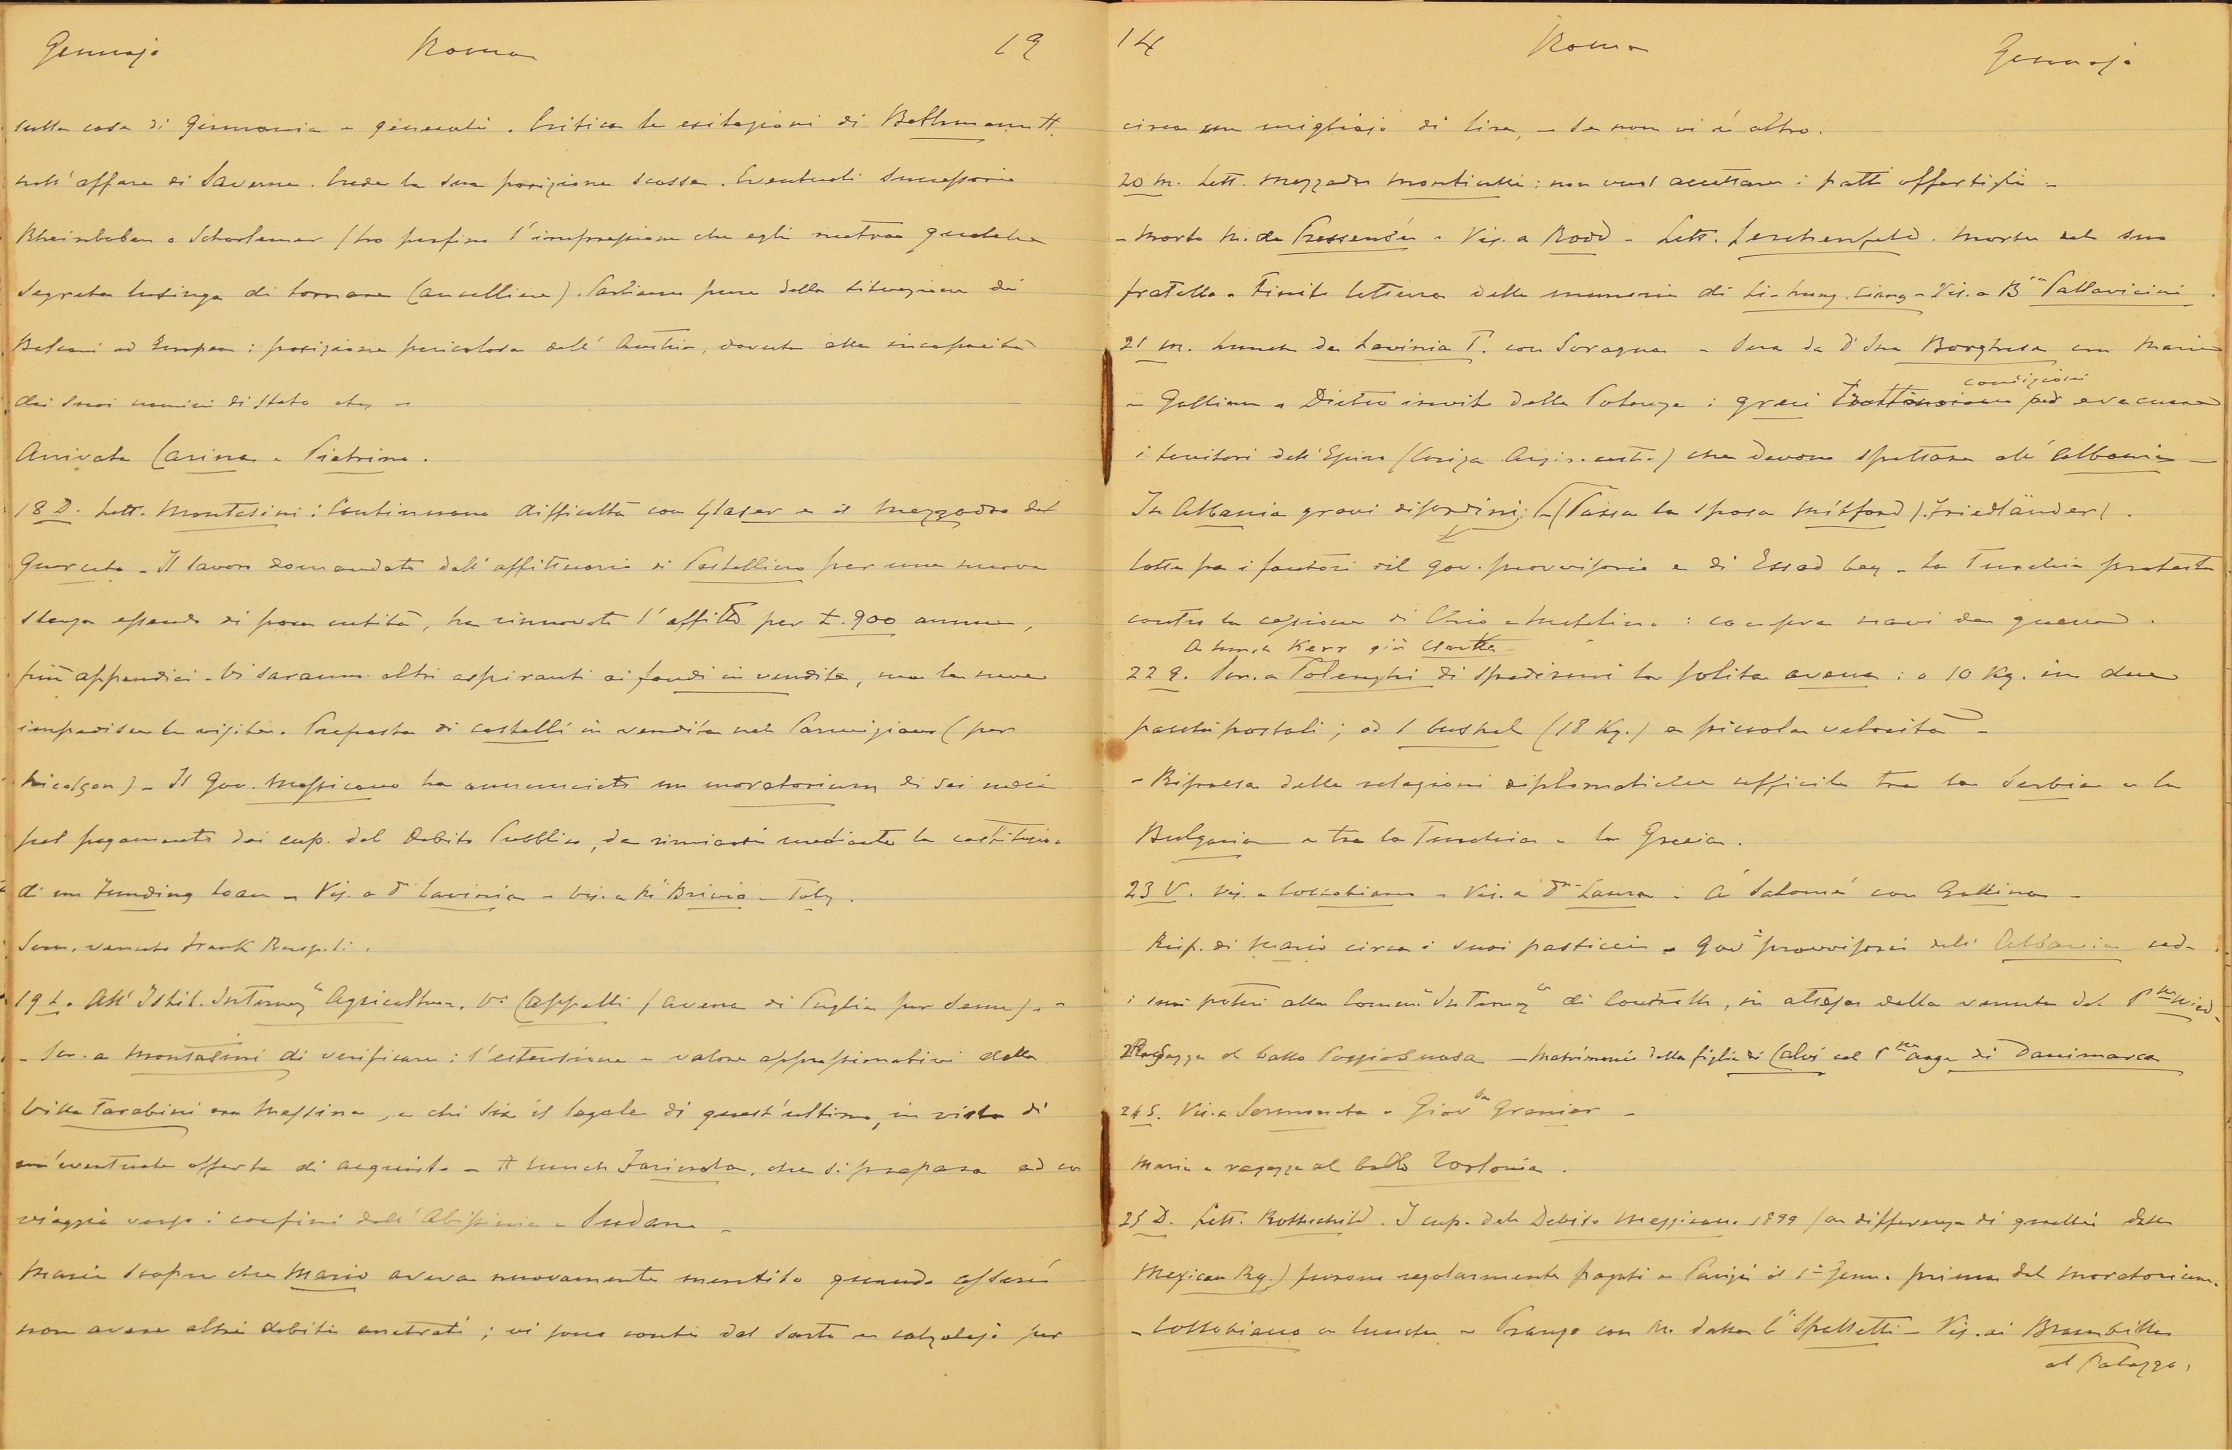 Gennajo Roma 19
sulle cose di Germania e generali. Critica le esitazioni di Bethmann H.
nell'affare di Saverne. Crede la sua posizione scossa. Eventuali successori
Rheinbaben o Schorlemer (ho perfino l'impressione che egli nutra qualche
segreta lusinga di tornare Cancelliere). Parliamo pure della situazione dei
Balcani ed Europea: posizione pericolosa dell'Austria, dovuta alla incapacità
dei suoi uomini di Stato etc. -
Arrivata Carina e Pietrino.
18 D. Lett. Montesini: Continuano difficoltà con Glaser e il mezzadro del
Querceto - Il lavoro domandato dall'affittuario di Castellino per una nuova
stanza essendo di poca entità, ha rinnovato l'affitto per £. 900 annue,
più appendici - Vi saranno altri aspiranti ai fondi in vendita, ma la neve
impedisce le visite. Proposta di castelli in vendita nel Parmigiano (per
Nicolson) - Il Gov. Messicano ha annunciato un moratorium di sei mesi
pel pagamento dei cup. del Debito Pubblico, da rimicarsi mediante la costituzione
di un Funding Loan - Vis. a Dª Lavinia - Vis. a Brivio - Toby.
Sera, venuto Frank Ruspoli.
19 L. All'Istit. Internaz. Agricoltura. Vº Cappelli (avena di Puglia per seme) -
- Scr. a Montesini di verificare: l'estensione e valore approssimativi della
Villa Tarabini ora Messina, e chi sia il legale di quest'ultimo, in vista di
un'eventuale offerta di acquisto - A lunch Farinola, che si prepara ad un
viaggio verso i confini dell'Abissinia e Sudan -
Maria scopre che Mario aveva nuovamente mentito quando asserì
non avere altri debiti arretrati; vi sono conti del sarto e calzolajo per
14 Roma Gennajo
circa un migliajo di lire, - se non vi è altro.
20 M. Lett. mezzadro Monticelli: non vuol accettare i patti offertigli -
- Morto M. de Pressensé - Vis. a Rodd - Lett. Lerchenfeld. Morte del suo
fratello - Finita lettura delle memorie di Li-hung-Ciang - Vis. a Bⁿ Pallavicini.
21 M. Lunch da Lavinia T. con Soragna - Sera da Dª Borghese con Maria
- Gallina - Dietro invito delle Potenze i greci condizioni per evacuare
i territori dell'Epiro (Coriza Argirocastro) che devono spettare all'Albania -
In Albania gravi disordini; (Passa la sposa Mitford) (Friedländer).
lotte fra i fautori del gov. provvisorio e di Essad bey - La Turchia protesta
contro la cessione di Chio e Mitilene: compra navi da guerra.
A lunch Kerr già
22 G. Scr. a Polenghi di spedirmi la solita avena: o 10 Kg. in due
pacchi postali; od 1 bushel (18 Kg.) a piccola velocità -
- Ripresa delle relazioni diplomatiche ufficiali tra la Serbia e la
Bulgaria e tra la Turchia e la Grecia.
23 V. Vis. a Cossobiano - Vis. a Dª Laura: A Salomé con Gallina -
Risp. di Mario circa i suoi pasticci - Govº provvisorio dell'Albania cede
i suoi poteri alla Commⁿᵉ Internazˡᵉ di Controllo, in attesa della venuta del Pᵖᵉ Wied.
Ragazze al ballo Poggio Suasa - Matrimonio della figlia di Calvi col Pᵖᵉ Aage di Danimarca
24 S. Vis. a Sermoneta - Giov. Grenier -
Maria e ragazze al ballo Torlonia.
25 D. Lett. Rothschild. I cup. del Debito Messicano 1899 (a differenza di quelli delle
Mexican Ry.) furono regolarmente pagati a Parigi il 1º Genn. prima del moratorium.
- Cossobiano a lunch - Pranzo con M. dalla Cª Spalletti - Vis. ai Brambilla
al Palazzo.